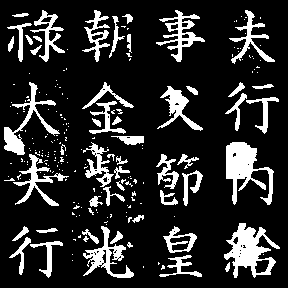 夫行内給
事父節皇
朝金紫光
祿大夫行